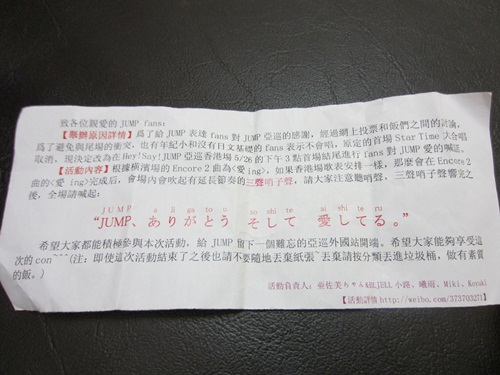 致各位親愛的 JUMP fans:
【舉辦原因詳情】爲了給 JUMP 表達 fans 對 JUMP 亞巡的感謝，經過網上投票和飯們之間的討論，
爲了避免與尾場的衝突，也有年紀小和沒有日文基礎的 fans 表示不會唱，原定的首場 Star Time 大合唱
取消。現決定改為在 Hey!Say!JUMP 亞巡香港場 5/26 的下午 3 點首場結尾進行 fans 對 JUMP 愛的喊話。
【活動內容】根據橫濱場的 Encore 2 曲為<愛 ing>，如果香港場歌表安排一樣，那麼會在 Encore 2
曲的<愛 ing>完成后，會場內會吹起有延長節奏的三聲哨子聲，請大家注意聽哨聲，三聲哨子聲響完之
後，全場請喊起:
JUMP a ri ga to u so shi te ai shi te ru
“JUMP、ありがとう そして 愛してる。”
希望大家都能積極參與本次活動，給 JUMP 留下一個難忘的亞巡外國站開端。希望大家能夠享受這
次的 con~^^(注: 即使這次活動結束了之後也請不要隨地丟棄紙張~丟棄請按分類丟進垃圾桶，做有素質
的飯。)
活動負責人: 亜佐美ちゃん&BLJELL 小路、曦雨、Miki、Konuki
【活動詳情 http://weibo.com/373703271】